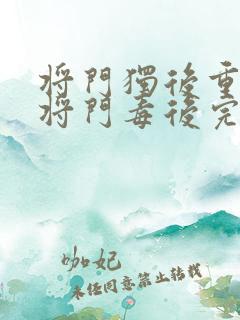 將門獨後重
將門毒後完
咖妃
未經同意禁止轉載